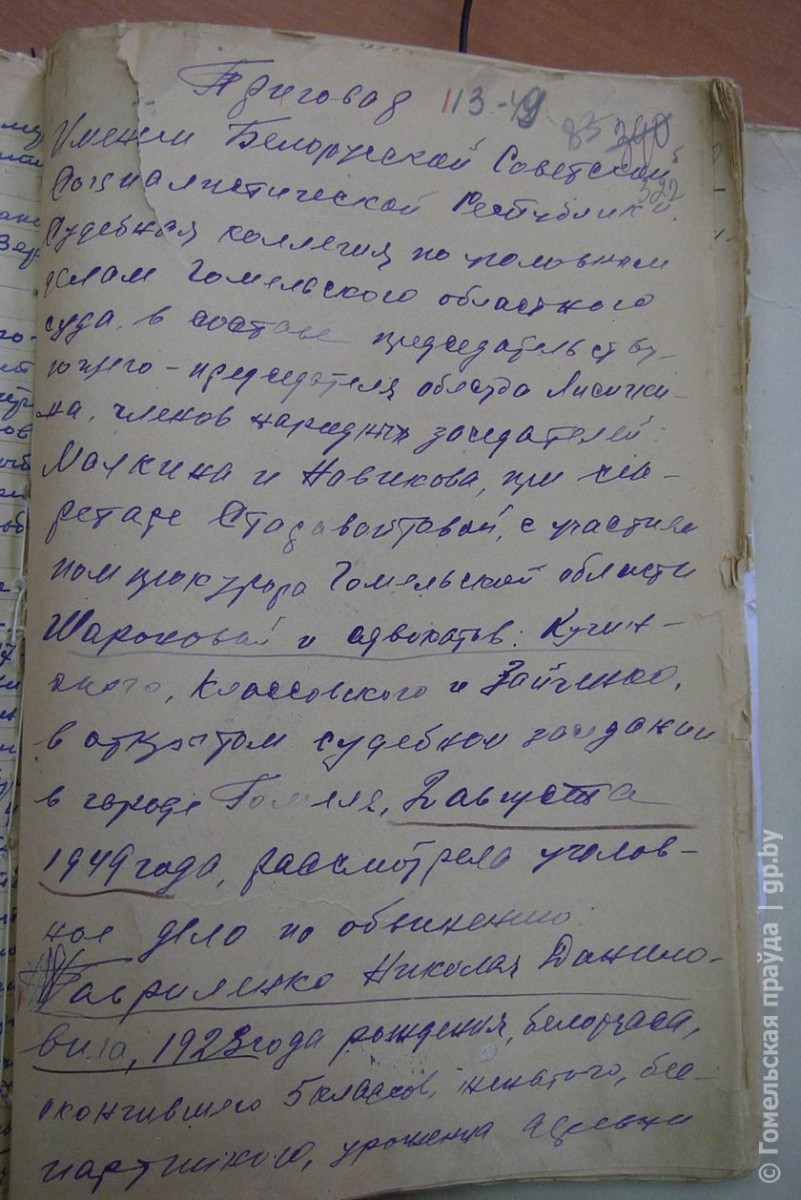 Приговор 113-49 83 390
522
Именем Белорусской Советской
Социалистической Республики.
Судебная коллегия по уголовным
делам Гомельского областного
суда, в составе председательству-
ющего - председателя облсуда Лисички-
на, членов народных заседателей:
Малкина и Новикова, при сек-
ретаре Стадавойтовой, с участием
помпрокурора Гомельской области
Шароновой и адвокатов: Кучин-
ского, Классовского и Зайченко,
в открытом судебном заседании
в городе Гомеле, 2 августа
1949 года, рассмотрела уголов-
ное дело по обвинению:
Гавриленко Николая Данило-
вича, 1923 года рождения, белоруса,
окончившего 5 классов, женатого, бес-
партийного, уроженца деревни
© Гомельская праўда | gp.by